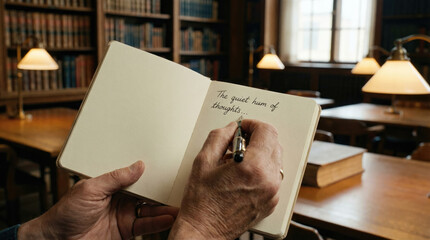 The quiet hum of
thoughts